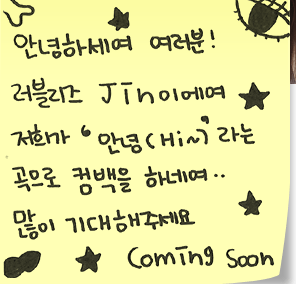 안녕하세여 여러분!
러블리즈 Jin이에여
저희가 “안녕(Hi~)”라는
곡으로 컴백을 하네여..
많이 기대해주세요
Coming Soon